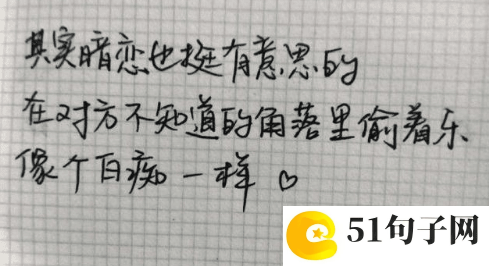 其实暗恋也挺有意思的
在对方不知道的角落里偷着乐
像个白痴一样 ♡
51句子网